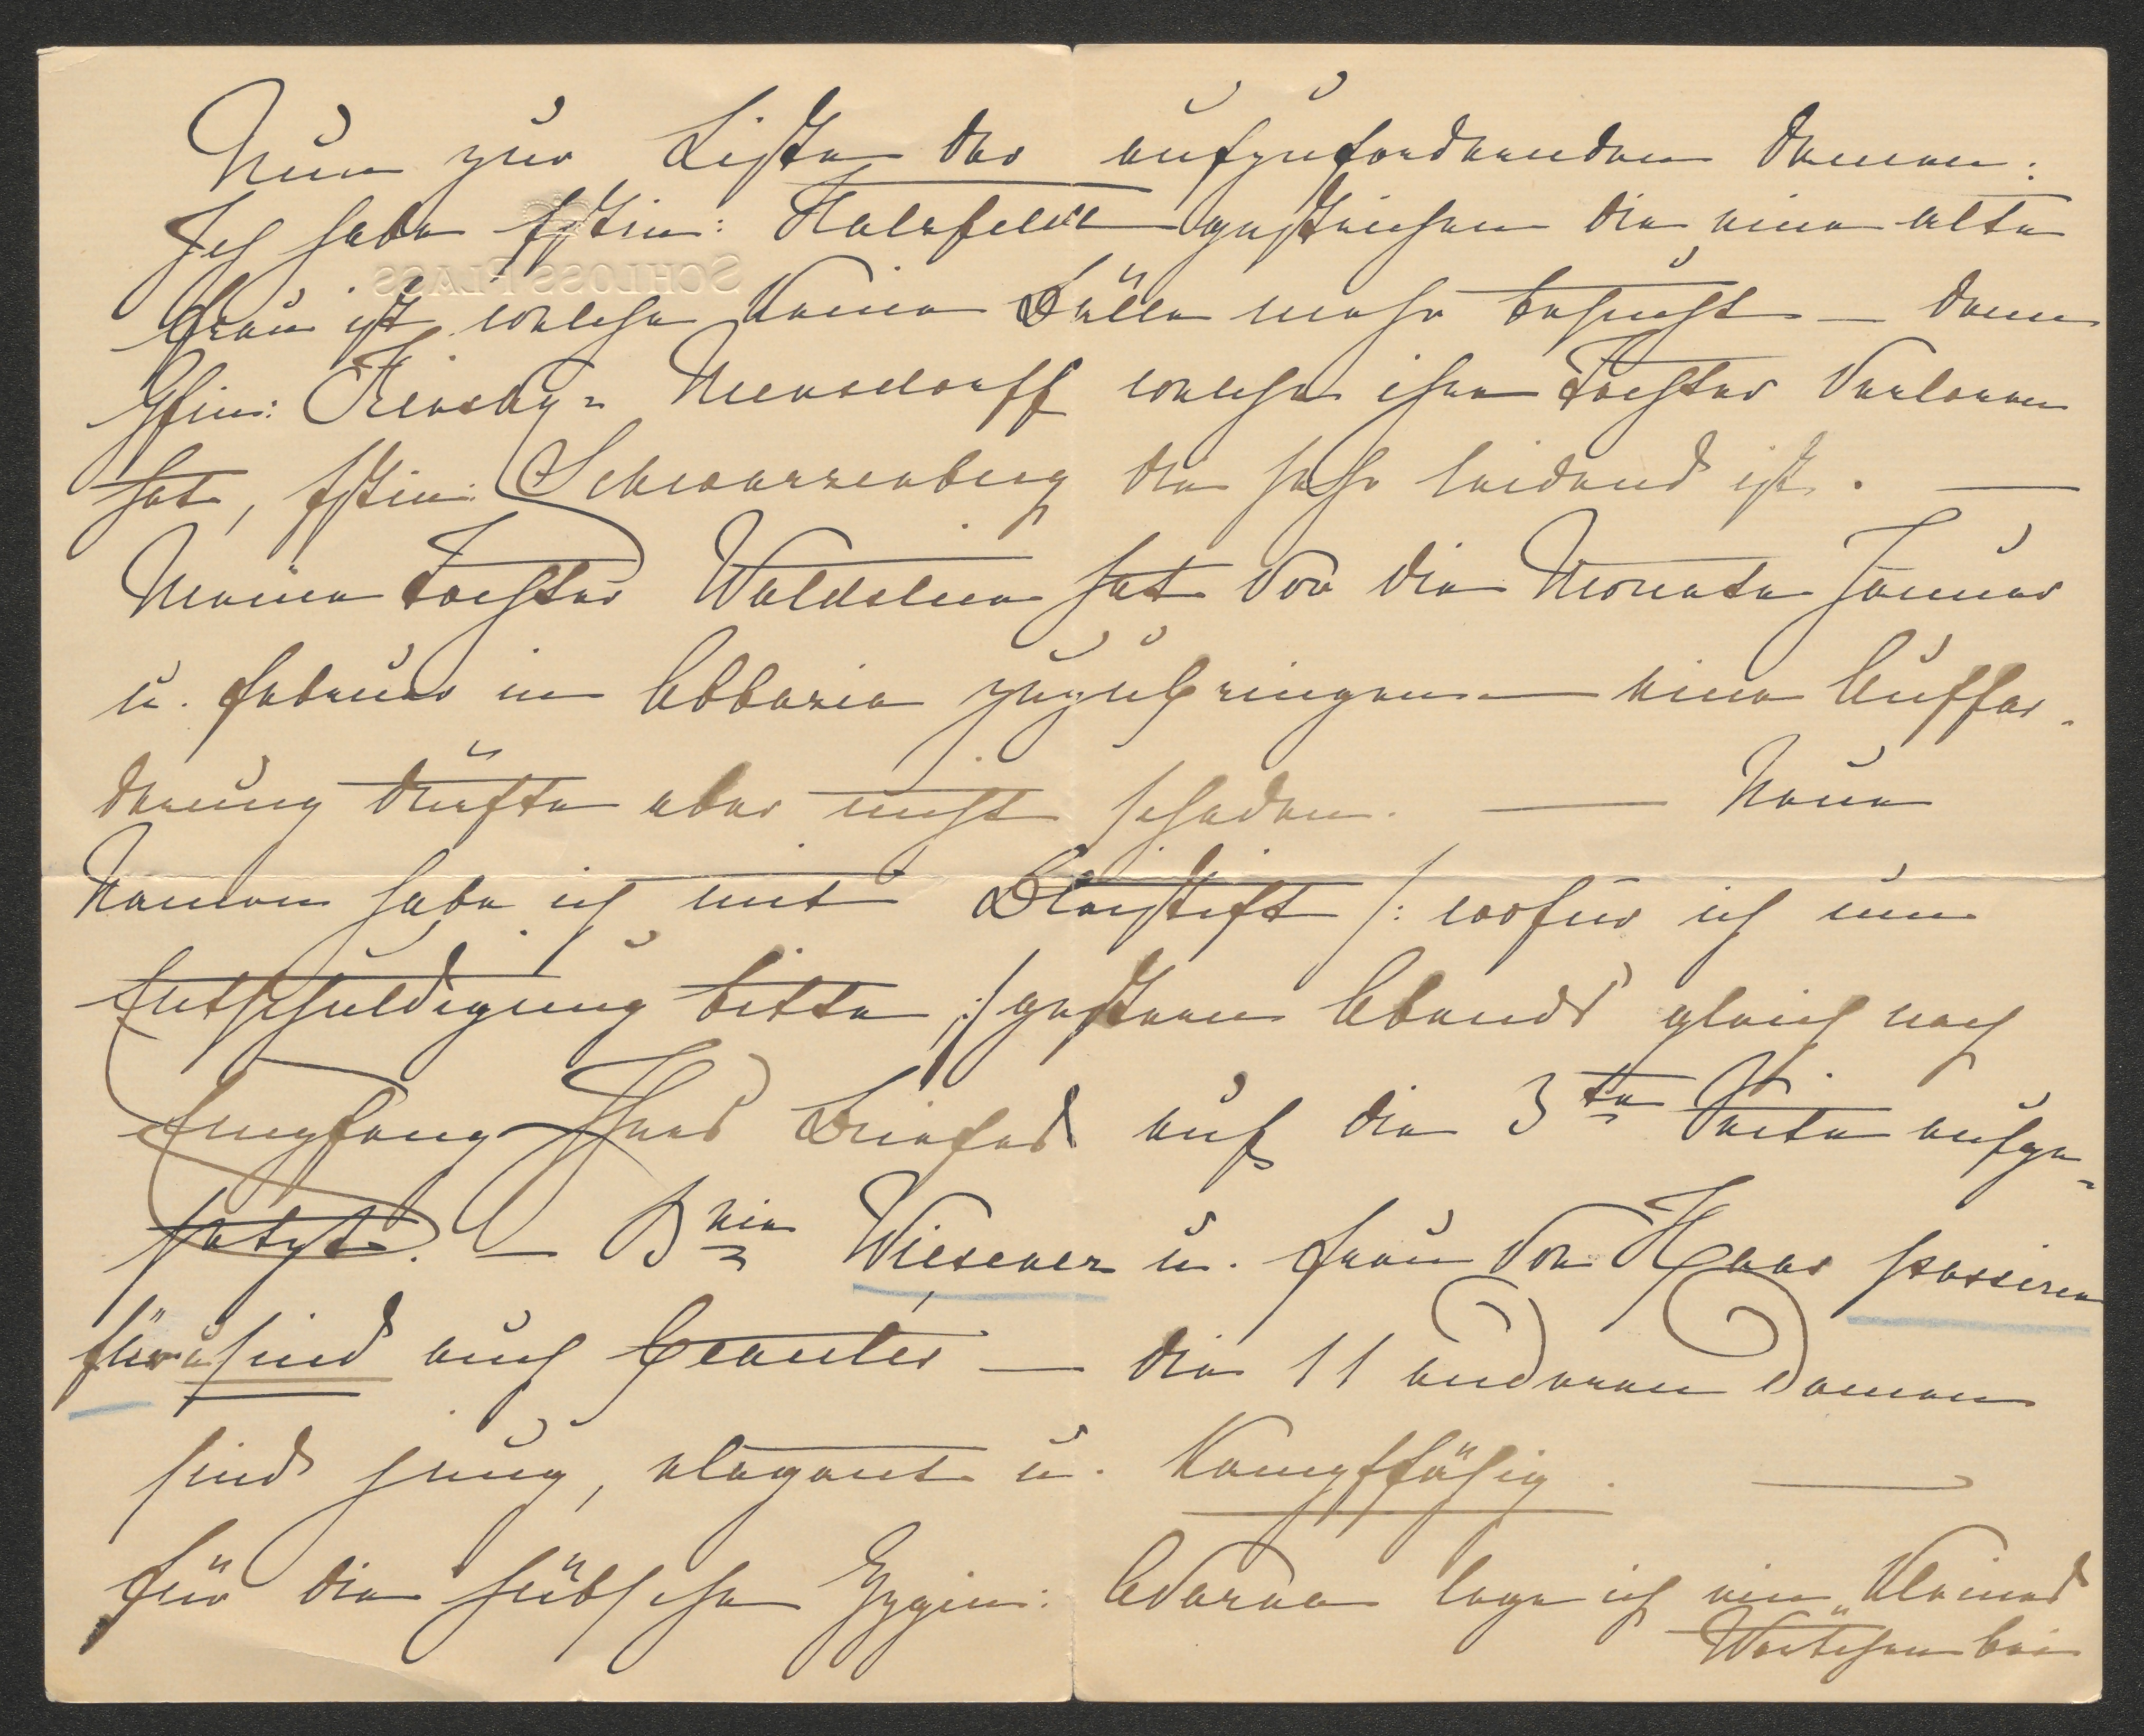 Nun zur Liste der aufzufordernden Damen:
Ich habe Fstin: Hatzfeldt gestrichen die eine alte
SCHLOSS PLASS
Frau ist welche keine Bälle mehr besucht – dann
Gfin: Kinsky= Mensdorff welche ihre Tochter verloren
hat, Fstin: Schwarzenberg die sehr leidend ist. —
Meine Tochter Waldstein hat vor die Monate Januar
u. Februar in Abbazia zuzubringen — eine Auffor-
derung dürfte aber nicht schaden. — Neue
Namen habe ich mit Bleistift /: wofür ich um
Entschuldigung bitte :/ gestern Abends gleich nach
Empfang Ihres Briefes auf die 3te Seite aufge=
setzt. — Bnin Wiesener u. Frau von Haas passiren
für u sind auch — die 11 anderen Damen
sind jung, elegant u. Kampffähig. —
Für die hübsche lege ich ein kleines
Wörtchen bei